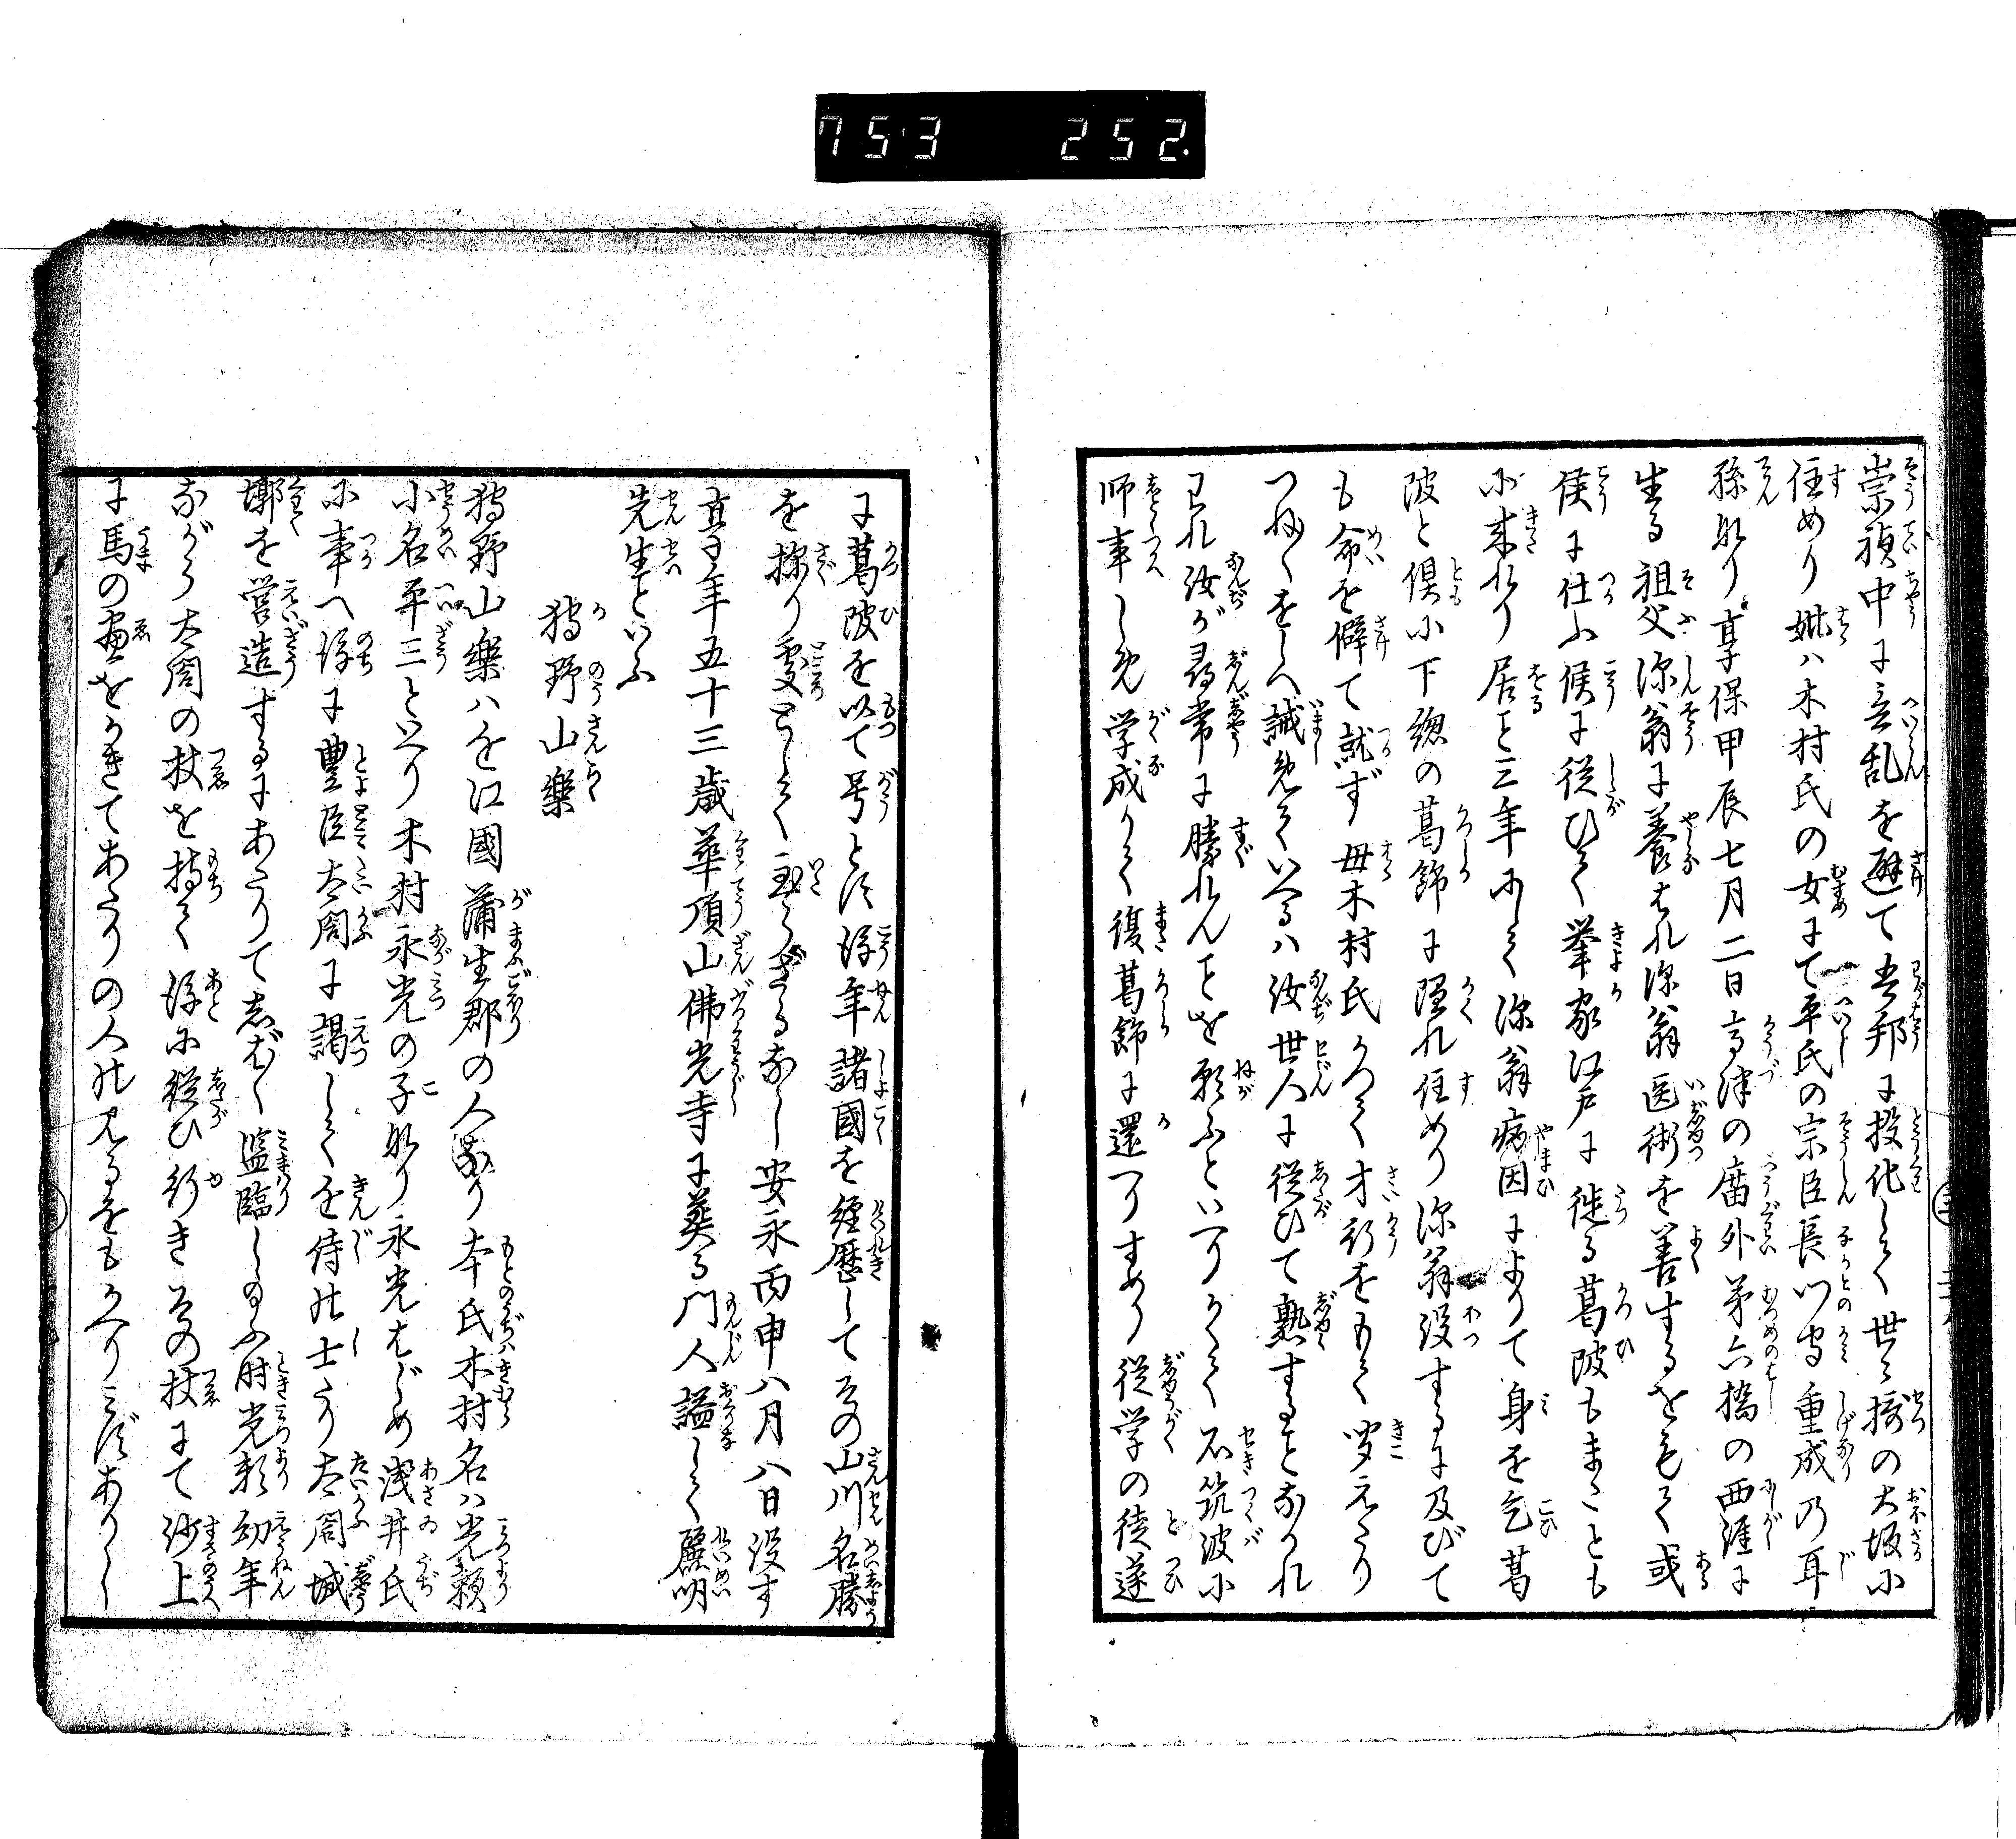 753 252.
崇禎中に兵乱を避て吾邦に投化して世々摂の大坂に
住めり妣ハ木村氏の女にて平氏の宗臣長門守重成の耳
孫なり享保甲辰七月二日高津の廓外第六橋の西涯に
生る祖父深翁に養はれ深翁医術を善するをもて或
侯に仕ふ侯に従ひて挙家江戸に徙る葛陂もまことも
に来れり居こと三年にして深翁病因によりて身を乞葛
陂と倶に下総の葛飾に隠れ住めり深翁没するに及びて
も命を辞て就ず母木村氏かつて才行をもて聞えたり
つねにをしへ誡めていへるハ汝世人に従ひて熟することなかれ
已れ汝が尋常に勝れんことを願ふといへりかくて石筑波に
師事しめ学成りて復葛飾に還へりすめり従学の徒遂
に葛陂を以て号とす後年諸國を経歴してその山川名勝
を探り処として至らざるなし安永丙申八月八日没す
享年五十三歳華頂山佛光寺に葬る門人謚して麗明
先生といふ
狩野山樂
狩野山樂ハ近江國蒲生郡の人なり本氏木村名ハ光頼
小名平三といへり木村永光の子なり永光はじめ浅井氏
に事へ後に豊臣太閤に謁して近侍の士たり太閤城
墎を営造するにあたりてしば〱監臨したまふ時光頼幼年
ながら太閤の杖を持て後に従ひ行きその杖にて沙上
に馬の画をかきてあたりの人の見るをもかへりみずありし